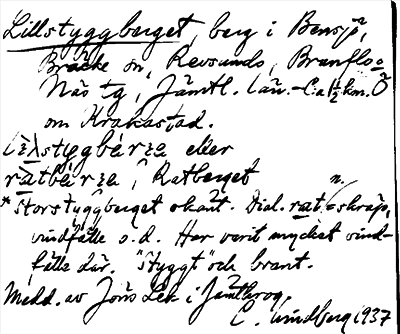 Lillstyggberget, berg i Bensjö,
Bräcke sn, Revsunds, Brunflo o
Näs tg, Jämtl. län. – C:a 1½ km. Ö
om Krakastad.
eller
i Ratberget
*Storstyggberget okänt. Dial. rat, n. = skräp,
vindfälle o.d. Har varit mycket vind-
fälle där. "Styggt" och brant.
Medd. av Jöns Lek i Jämtkrog,
C. Lindberg 1937